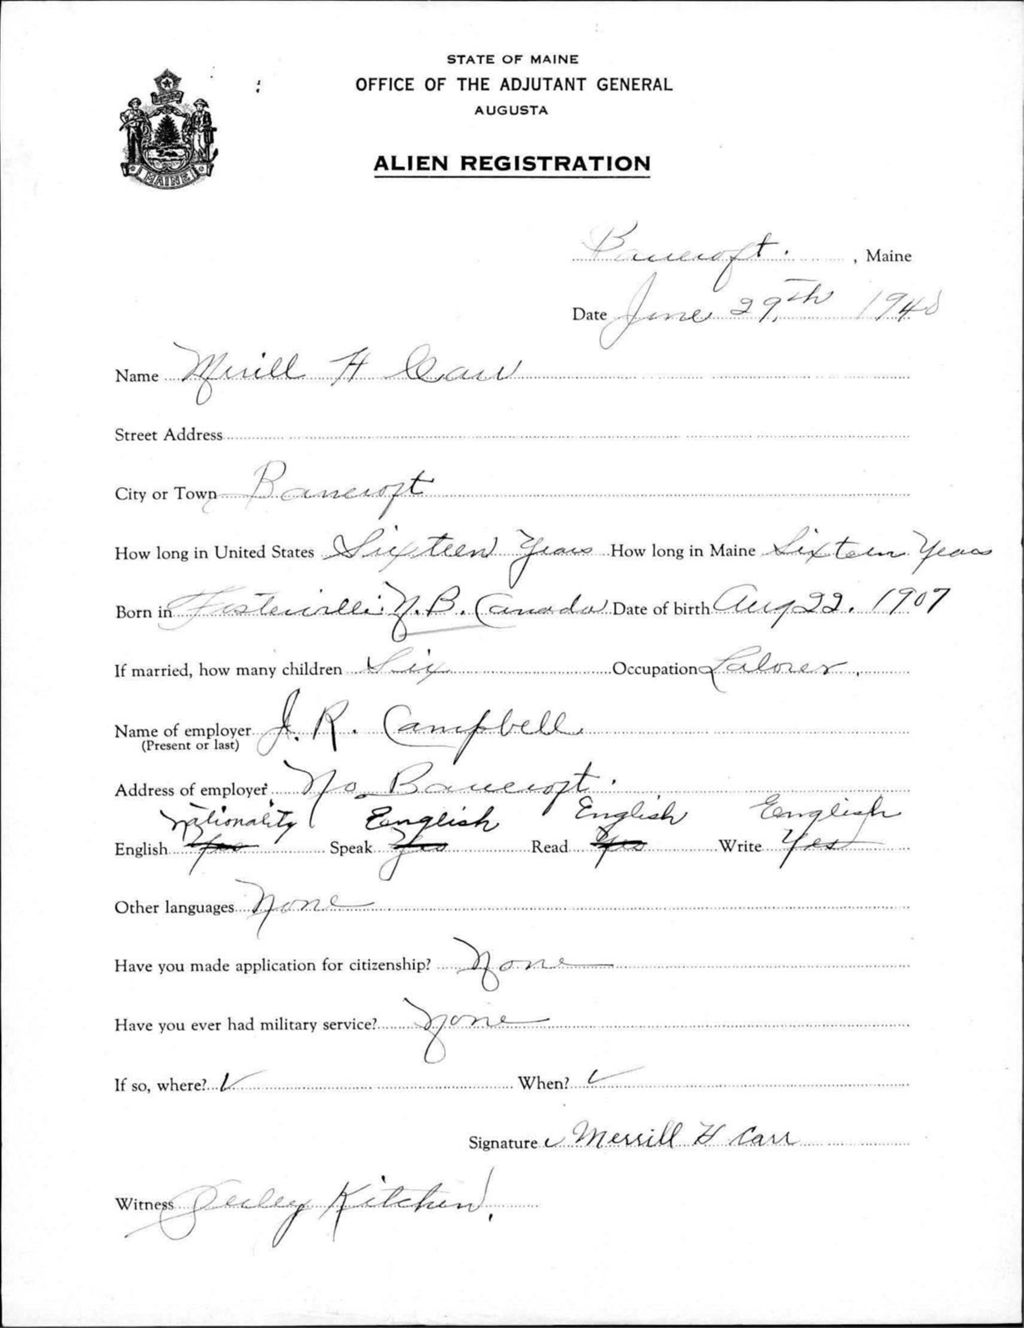 STATE OF MAINE
OFFICE OF THE ADJUTANT GENERAL
AUGUSTA
MAINE
ALIEN REGISTRATION
Bancroft. , Maine
Date June 29,th 1940
Name Merrill H Carr
Street Address
City or Town Bancroft
How long in United States Sixteen Years How long in Maine Sixteen Years
Born in Fosterville N.B. Canada Date of birth Aug 22. 1907
If married, how many children Six Occupation Laborer
Name of employer J. R. Campbell
(Present or last)
Address of employer No Bancroft.
Nationality English English English
English Yes Speak Yes Read Yes Write Yes
Other languages None
Have you made application for citizenship? None
Have you ever had military service? None
If so, where? When?
Signature Merrill H Carr
Witness Kitchen.